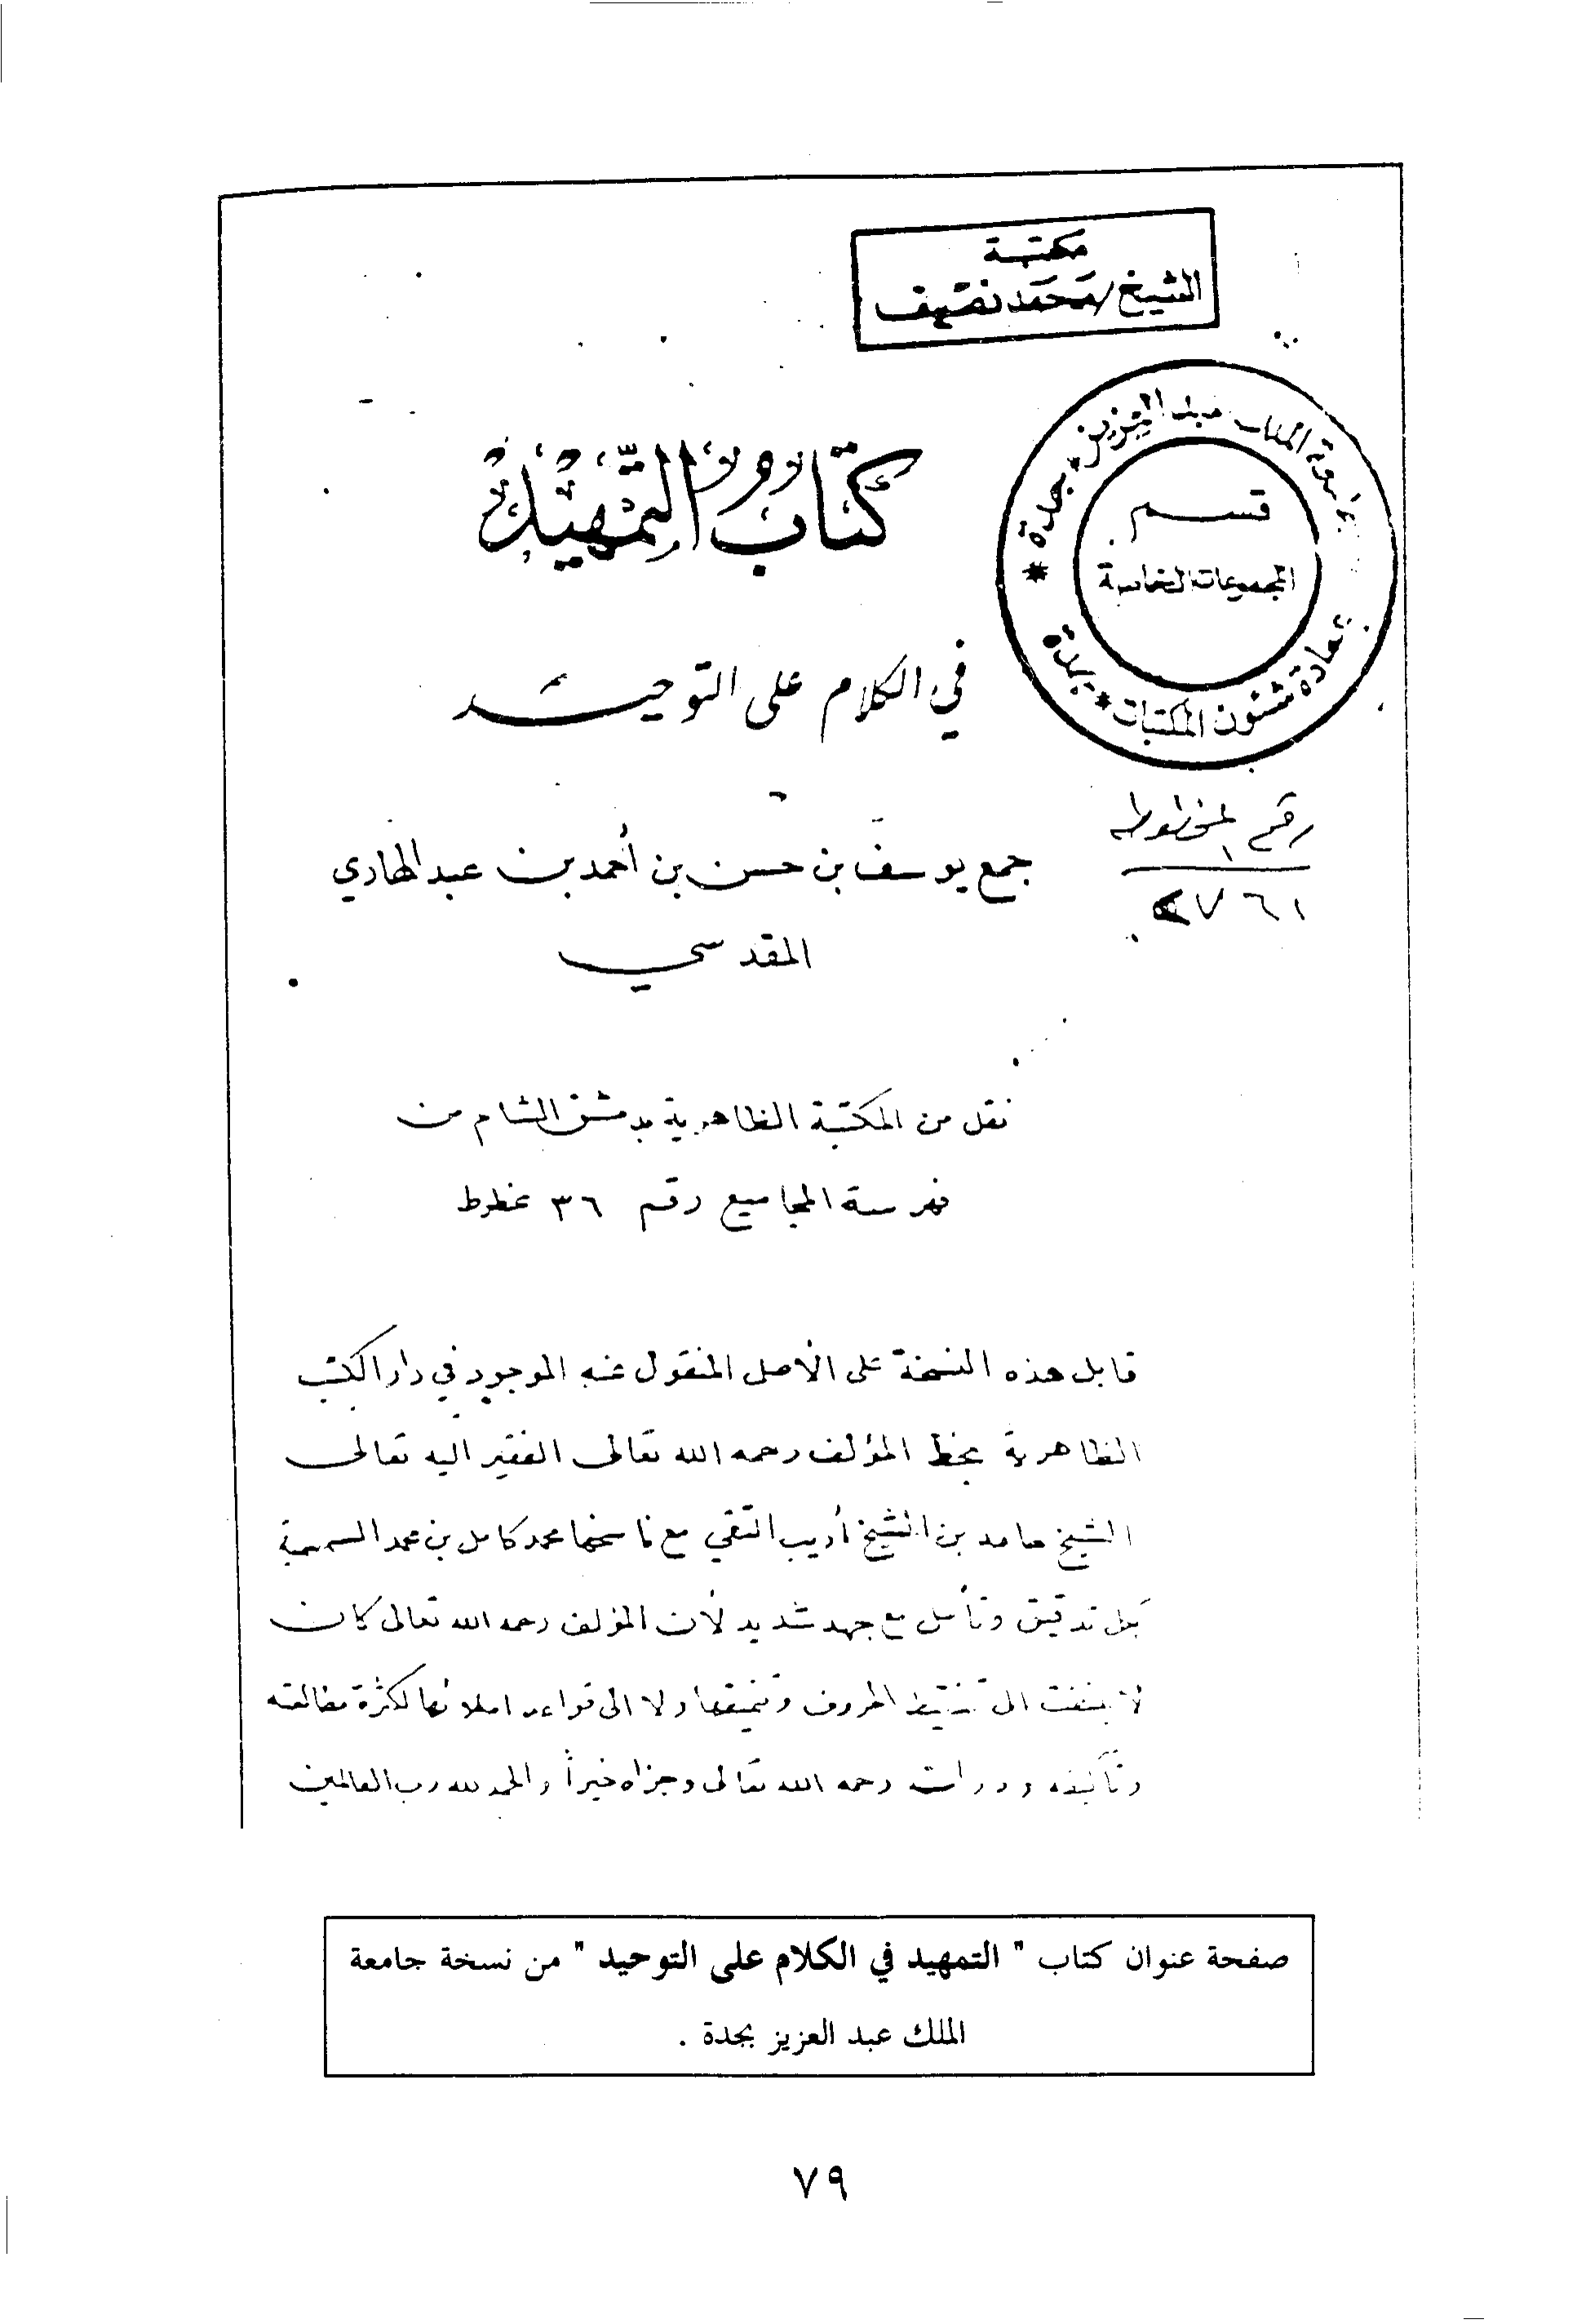 مكتبة
الشيخ/محمد نصيف
جامعة الملك عبد العزيز * بجدة
قسم
المجموعات الخاصة
عمادة شئون المكتبات * بجدة
كِتَابُ التَّمْهِيْدِ
في الكلام على التوحيد
رقم المخطوطه
جمع يوسف بن حسن بن أحمد بن عبد الهادي
المقدسي
نقل من المكتبة الظاهرية بدمشق الشام من
فهرسة المجاميع رقم ٣٦ مخطوط
قابل هذه النسخة على الأصل المنقول عنه الموجود في دار الكتب
الظاهرية بخط المؤلف رحمه الله تعالى الفقير اليه تعالى
الشيخ حامد بن الشيخ أديب التقي مع ناسخها محمد كامل بن محمد السمسمية
بكل تدقيق وتأمل مع جهد شديد لأن المؤلف رحمه الله تعالى كان
لا يلتفت الى تنقيط الحروف وتنميقها ولا الى قواعد املائها لكثرة مطالعته
وتآليفه رحمه الله تعالى وجزاه خيراً والحمد لله رب العالمين
صفحة عنوان كتاب " التمهيد في الكلام على التوحيد " من نسخة جامعة
الملك عبد العزيز بجدة .
٧٩